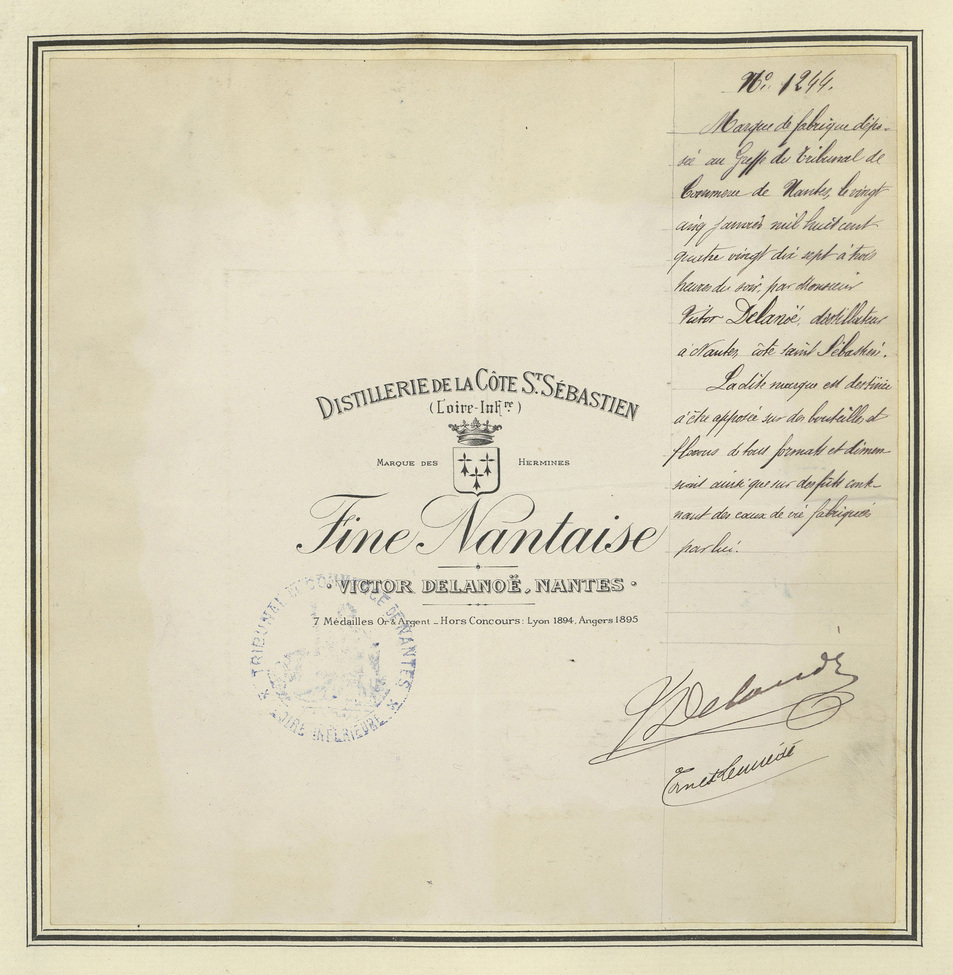 No. 1244.
Marque de fabrique dépo-
sée au Greffe du Tribunal de
Commerce de Nantes, le vingt
cinq janvier mil huit cent
quatre vingt dix sept à trois
heures du soir, par Monsieur
Victor Delanoë, distillateur
à Nantes, côte saint Sébastien.
La dite marque est destinée
à être apposée sur des bouteilles et
flacons de tous formats et dimen-
sions ainsi que sur des fûts conte-
nant des eaux de vie fabriquées
par lui.
DISTILLERIE DE LA CÔTE ST. SÉBASTIEN
(Loire-Infre)
MARQUE DES HERMINES
Fine Nantaise
· VICTOR DELANOË, NANTES ·
7 Médailles Or & Argent - Hors Concours: Lyon 1894, Angers 1895
TRIBUNAL DE COMMERCE DE NANTES
* LOIRE INFÉRIEURE *
V Delanoë
Ernest